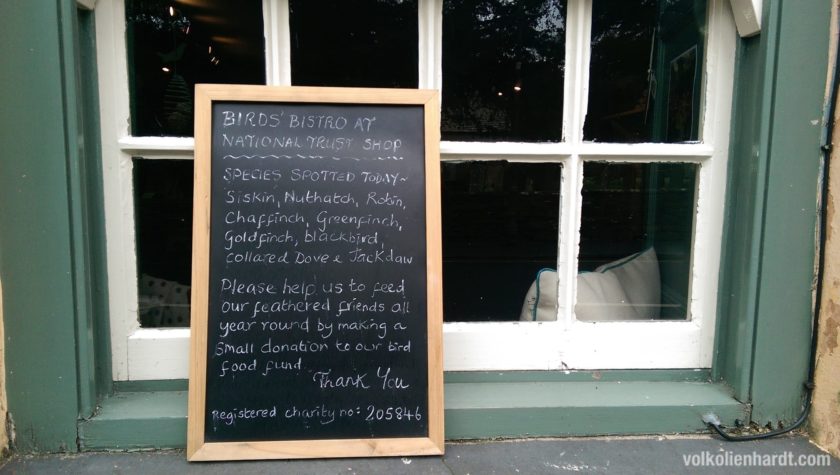 BIRDS' BISTRO AT
NATIONAL TRUST SHOP
SPECIES SPOTTED TODAY~
Siskin, Nuthatch, Robin,
Chaffinch, Greenfinch,
Goldfinch, blackbird,
collared Dove & Jackdaw
Please help us to feed
our feathered friends all
year round by making a
small donation to our bird
food fund.
Thank You
Registered charity no: 205846
volkolienhardt.com